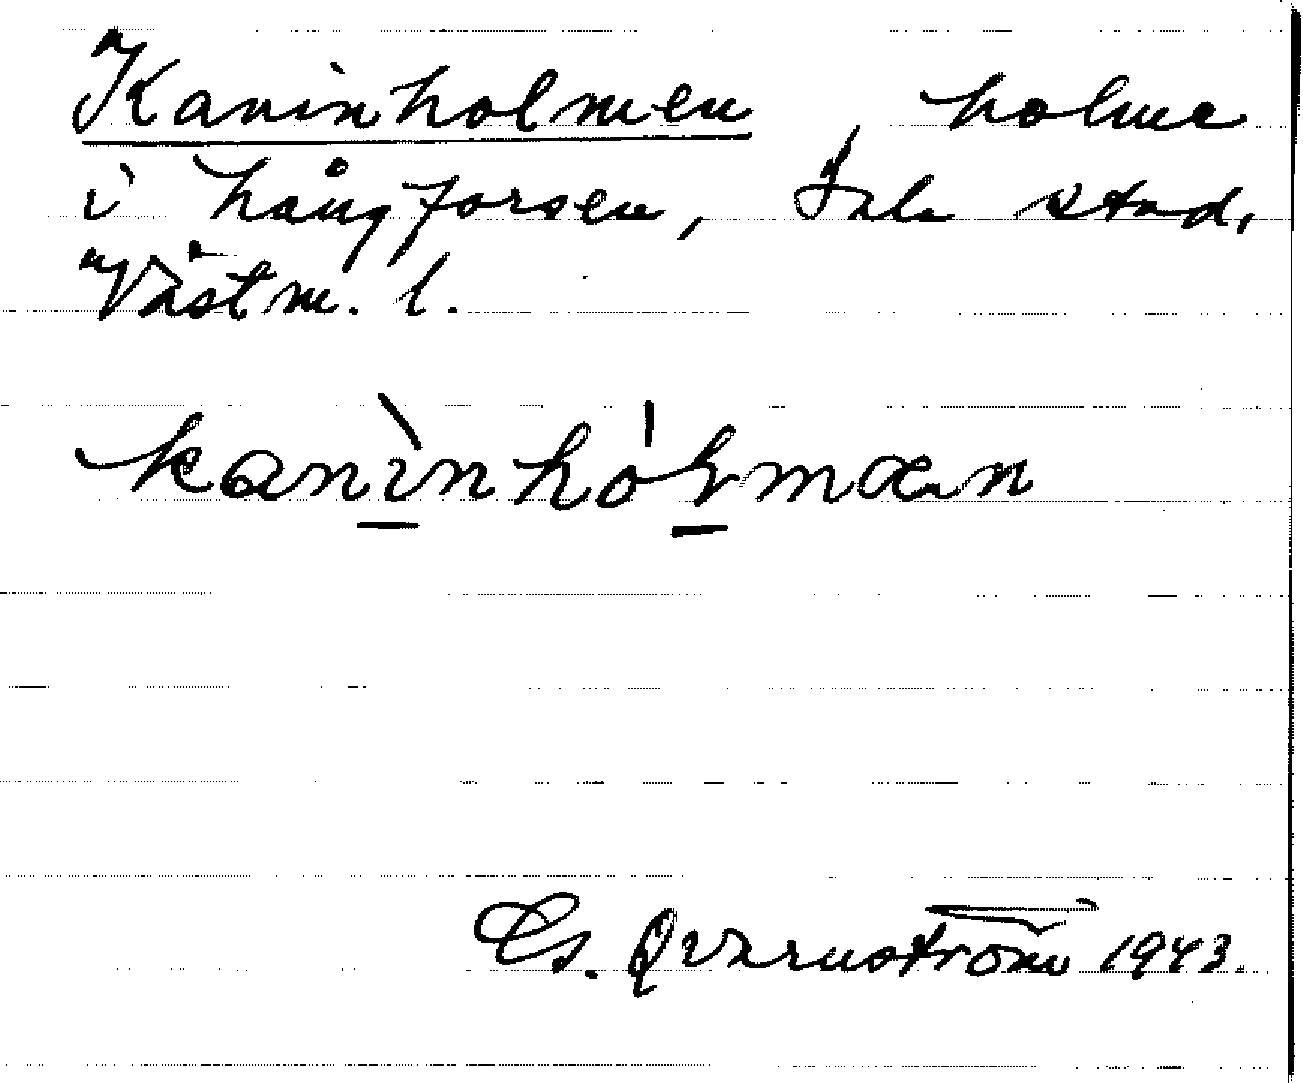 Kaninholmen, holme
i Långforsen, Sala stad,
Västm. l.
kanìnhólmæn
Es. Qvarnström 1943.